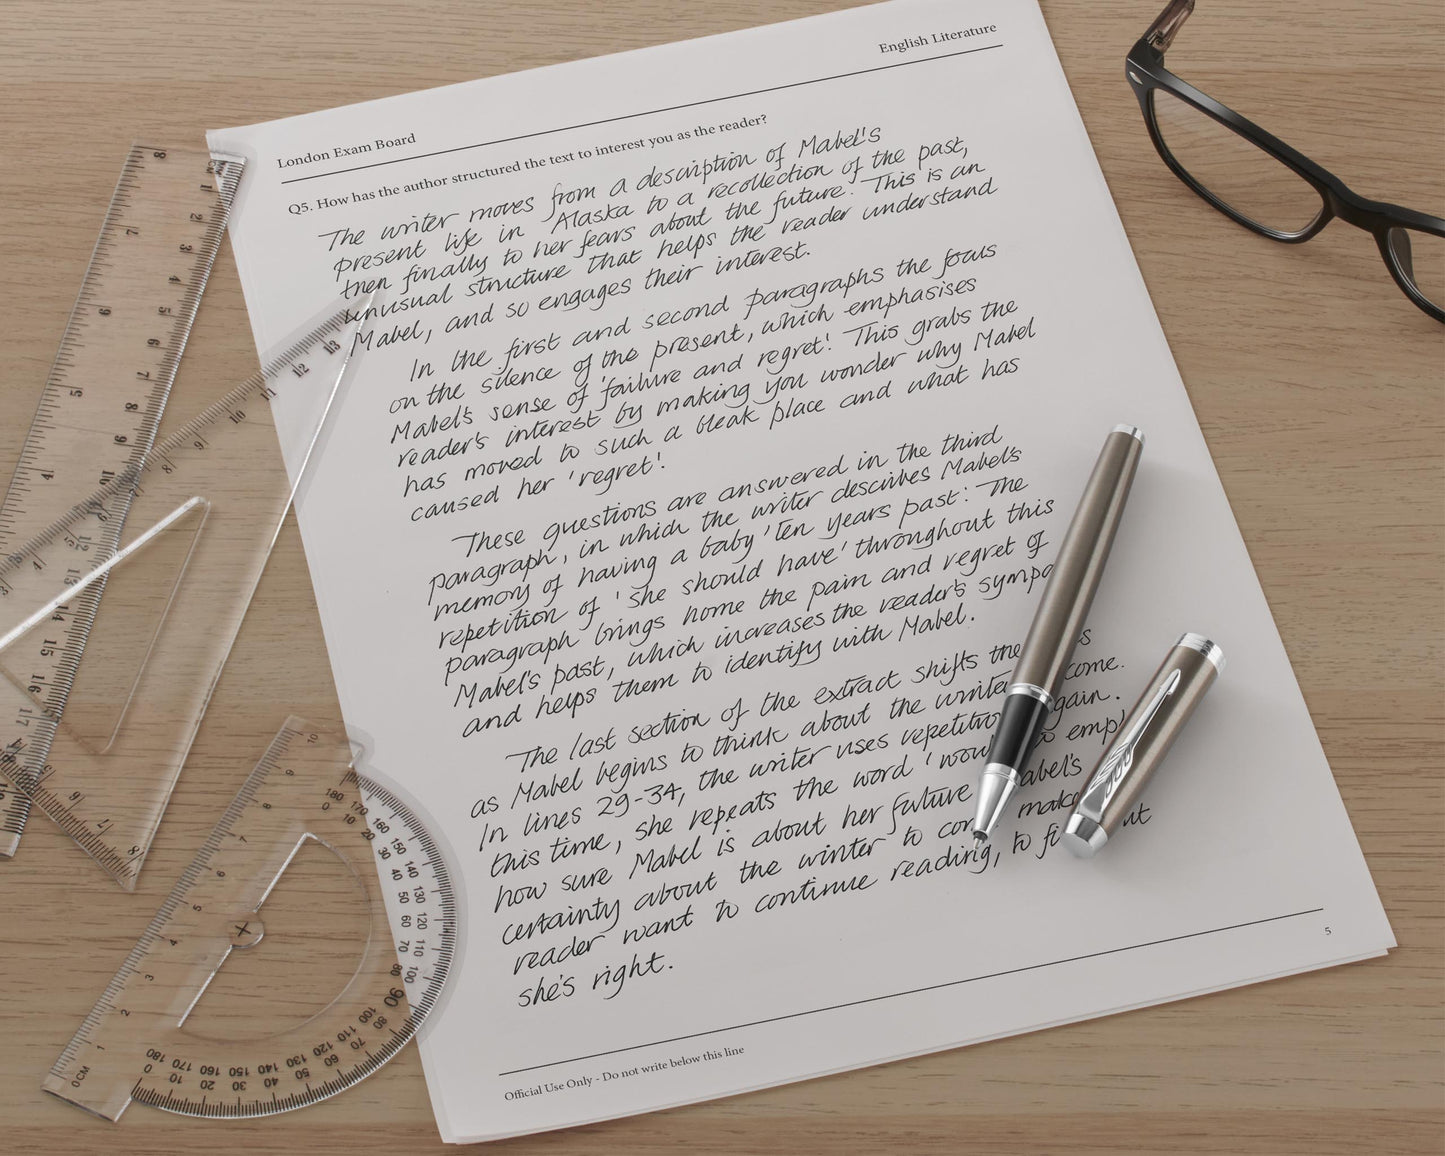 English Literature
London Exam Board
Q5. How has the author structured the text to interest you as the reader?
The writer moves from a description of Mabel's
present life in Alaska to a recollection of the past,
then finally to her fears about the future. This is an
unusual structure that helps the reader understand
Mabel, and so engages their interest.
In the first and second paragraphs the focus
on the silence of the present, which emphasises
Mabel's sense of 'failure and regret'. This grabs the
reader's interest by making you wonder why Mabel
has moved to such a bleak place and what has
caused her 'regret'.
These questions are answered in the third
paragraph, in which the writer describes Mabel's
memory of having a baby 'ten years past'. The
repetition of 'she should have' throughout this
paragraph brings home the pain and regret of
Mabel's past, which increases the reader's
and helps them to identify with Mabel.
The last section of the extract shifts the
as Mabel begins to think about the winter come.
In lines 29-34, the writer uses repetition again.
this time, she repeats the word 'would' to
how sure Mabel is about her future Mabel's
certainty about the winter to come
reader want to continue reading, to
she's right.
5
Official Use Only - Do not write below this line
8
1
2
3
4
5
6
7
8
9
10
11
12
13
15
16
17
0 CM
1
2
3
4
5
6
7
8
9
10
180
170
160
150
140
130
120
110
100
90
80
70
60
50
40
30
20
10
0
0
10
20
30
40
50
60
70
80
90
100
110
120
130
140
150
160
170
180